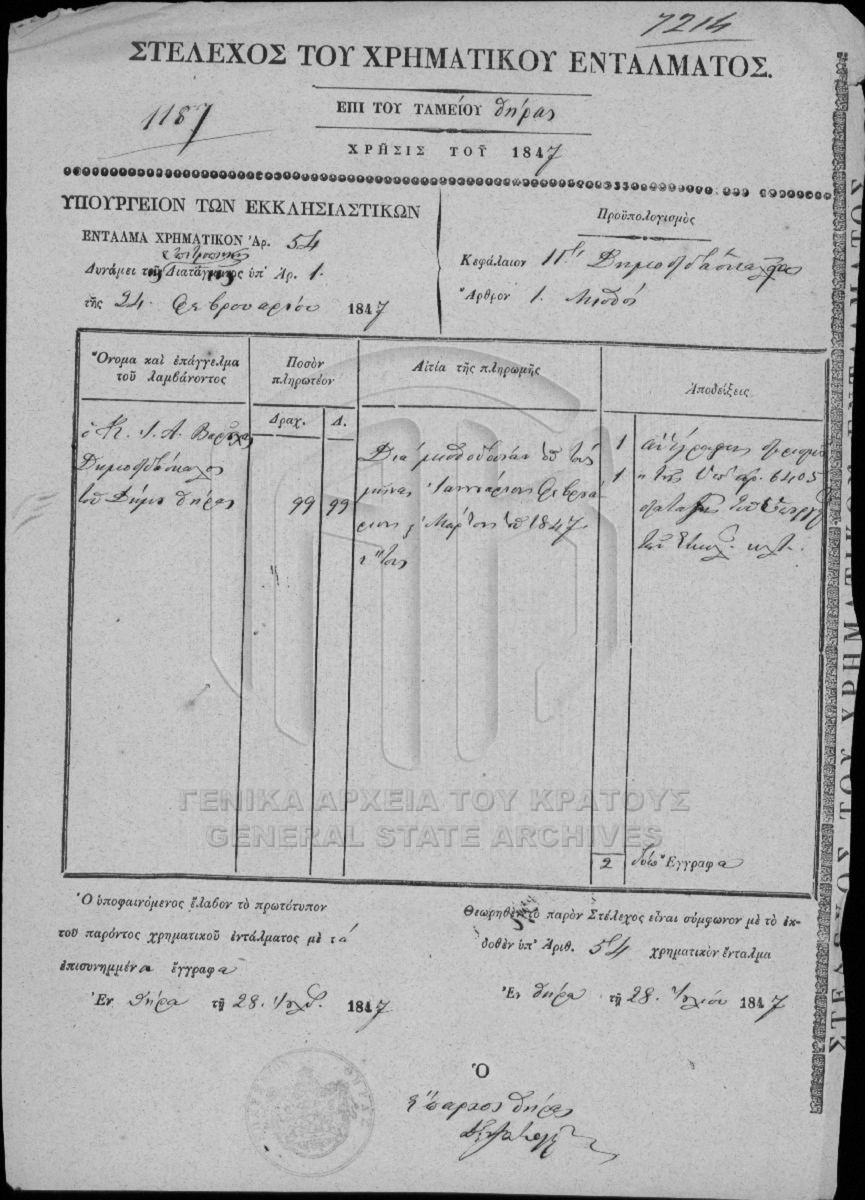 7214
ΣΤΕΛΕΧΟΣ ΤΟΥ ΧΡΗΜΑΤΙΚΟΥ ΕΝΤΑΛΜΑΤΟΣ.
1187
ΕΠΙ ΤΟΥ ΤΑΜΕΙΟΥ Θήρας
ΧΡΗΣΙΣ ΤΟΥ 1847
ΥΠΟΥΡΓΕΙΟΝ ΤΩΝ ΕΚΚΛΗΣΙΑΣΤΙΚΩΝ
ΕΝΤΑΛΜΑ ΧΡΗΜΑΤΙΚΟΝ Ἀρ. 54
Δυνάμει τοῦ Διατάγματος ὑπ' Ἀρ. 1.
τῆς 24 Φεβρουαρίου 1847
Προϋπολογισμὸς
Κεφάλαιον
Ἄρθρον 1. Μισθοί
Ὄνομα καὶ ἐπάγγελμα τοῦ λαμβάνοντος
Ποσὸν πληρωτέον
Δραχ. Λ.
Αἰτία τῆς πληρωμῆς
Ἀποδείξεις
ὁ Κ. Ι. Α.
Δημοδιδάσκαλος
τοῦ Δήμου Θήρας
99 99
Διὰ μισθοδοσίαν τοῦ
μῆνας Ἰαννουάριον Φεβρουά-
ριον Μάρτιον τοῦ 1847
1
1 ἀρ. 6405
ΓΕΝΙΚΑ ΑΡΧΕΙΑ ΤΟΥ ΚΡΑΤΟΥΣ
GENERAL STATE ARCHIVES
2 Ἔγγραφα
Ὁ ὑποφαινόμενος ἔλαβον τὸ πρωτότυπον
τοῦ παρόντος χρηματικοῦ ἐντάλματος μὲ τά
ἐπισυνημμένα ἔγγραφα
Ἐν Θήρᾳ τῇ 28. 1847
Θεωρηθὲν τὸ παρὸν Στέλεχος εἶναι σύμφωνον μὲ τὸ ἐκ-
δοθὲν ὑπ' Ἀριθ. 54 χρηματικὸν ἔνταλμα
Ἐν Θήρᾳ τῇ 28. Ἰουλίου 1847
Ὁ
Ἔπαρχος Θήρας
ΣΤΕΛΕΧΟΣ ΤΟΥ ΧΡΗΜΑΤΙΚΟΥ ΕΝΤΑΛΜΑΤΟΣ